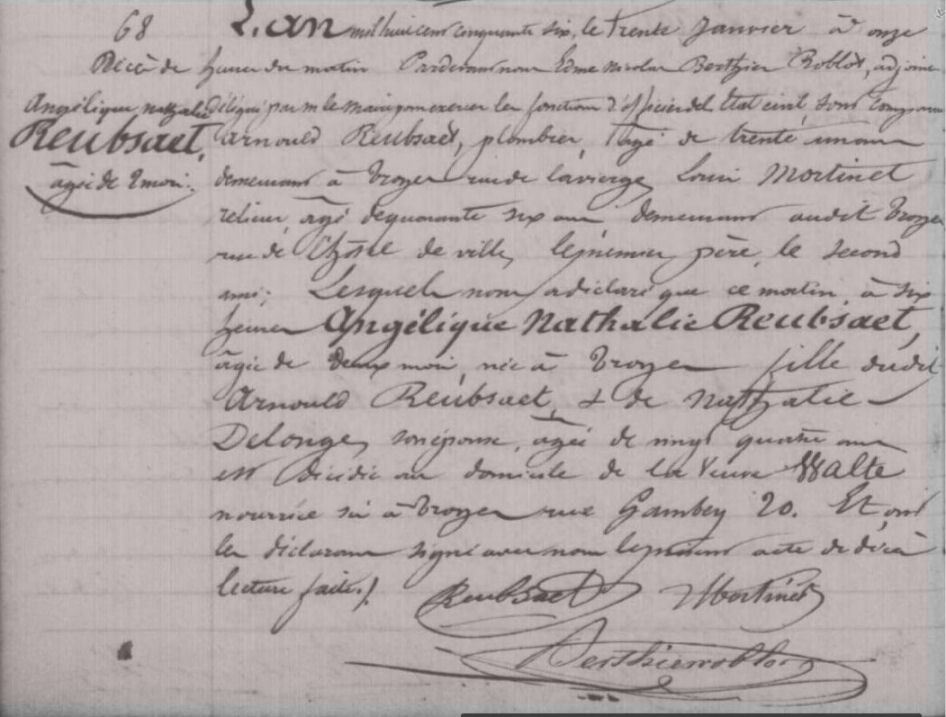 68
Décès de
Angélique Nathalie
Reubsaet,
âgée de 2 mois.
L'an mil huit cent cinquante six, le trente Janvier à onze
heures du matin Pardevant nous Edme Nicolas Berthier Roblot, adjoint
délégué par m le maire pour exercer les fonctions d'officier del'Etat civil, sont comparus
Arnould Reubsaet, plombier, âgé de trente un ans
demeurant à Troyes rue de la vierge, Louis Mortinet
relieur, âgé de quarante six ans demeurant audit Troyes
rue de l'hôtel de ville, le premier père, le second
ami; Lesquels nous ont déclaré que ce matin, à six
heures Angélique Nathalie Reubsaet,
âgée de deux mois, née à Troyes fille dudit
Arnould Reubsaet, & de Nathalie
Delonge, son épouse, âgée de vingt quatre ans
est décédée au domicile de la Veuve Walte
nourrice sis à Troyes rue Gambey 20. Et, ont
les déclarants signé avec nous le présent acte de décès
lecture faite./.
Reubsaet Mortinet
Berthierroblot